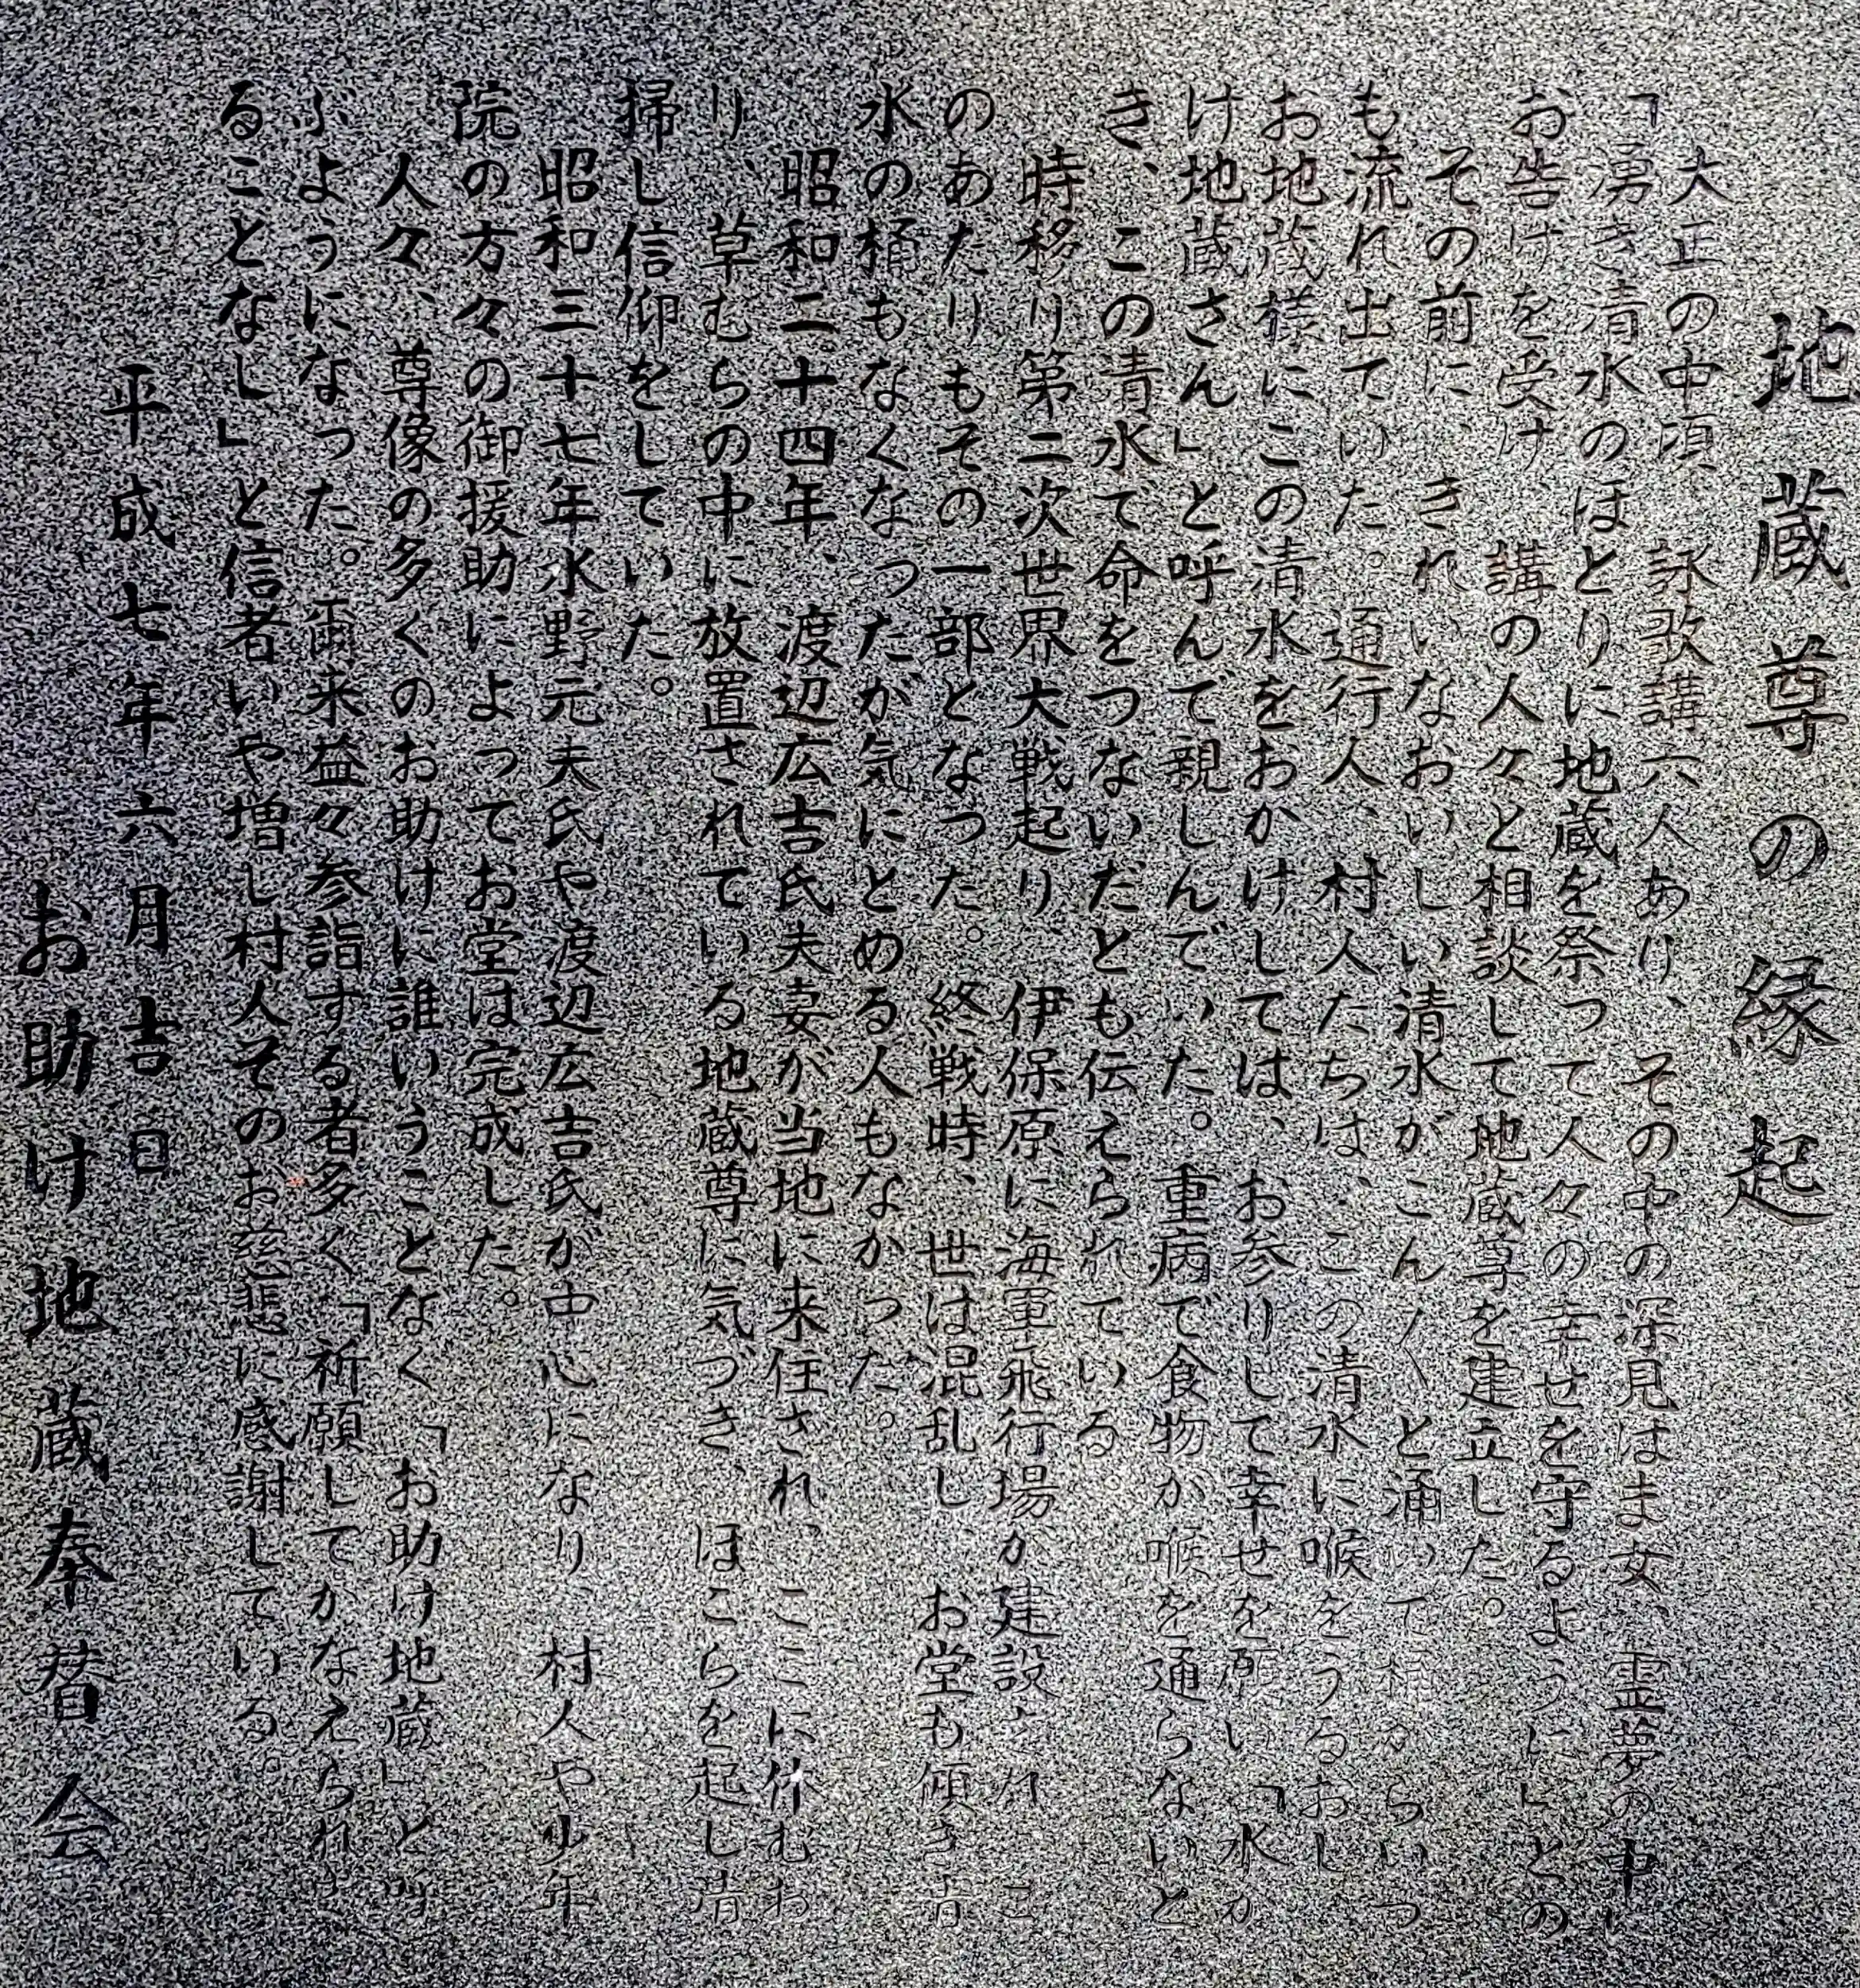 地蔵尊の縁起
大正の中頃、詠歌講六人あり、その中の深見はま女、霊夢の中に
「湧き清水のほとりに地蔵を祭って人々の幸せを守るように」との
お告けを受け、講の人々と相談して地蔵尊を建立した。
その前に、きれいなおいしい清水がこん〳〵と涌いて桶からいつ
も流れ出ていた。通行人、村人たちは、この清水に喉をうるおし
お地蔵様にこの清水をおかけしては、お参りして幸せを願い、「水か
け地蔵さん」と呼んで親しんでいた。重病で食物が喉を通らないと
き、この清水で命をつないだとも伝えられている。
時移り第二次世界大戦起り、伊保原に海軍飛行場が建設されこ
のあたりもその一部となった。終戦時、世は混乱し、お堂も傾き清
水の桶もなくなったが気にとめる人もなかった。
昭和二十四年、渡辺広吉氏夫妻が当地に来住され、ここに休むお
り、草むらの中に放置されている地蔵尊に気づき、ほこらを起し清
掃し信仰をしていた。
昭和三十七年水野元夫氏や渡辺広吉氏が中心になり、村人や少年
院の方々の御援助によってお堂は完成した。
人々、尊像の多くのお助けに誰いうことなく「お助け地蔵」と呼
ぶようになった。爾来益々参詣する者多く「祈願してかなえられざ
ることなし」と信者いや増し村人そのお慈悲に感謝している。
平成七年六月吉日
お助け地蔵奉賛会